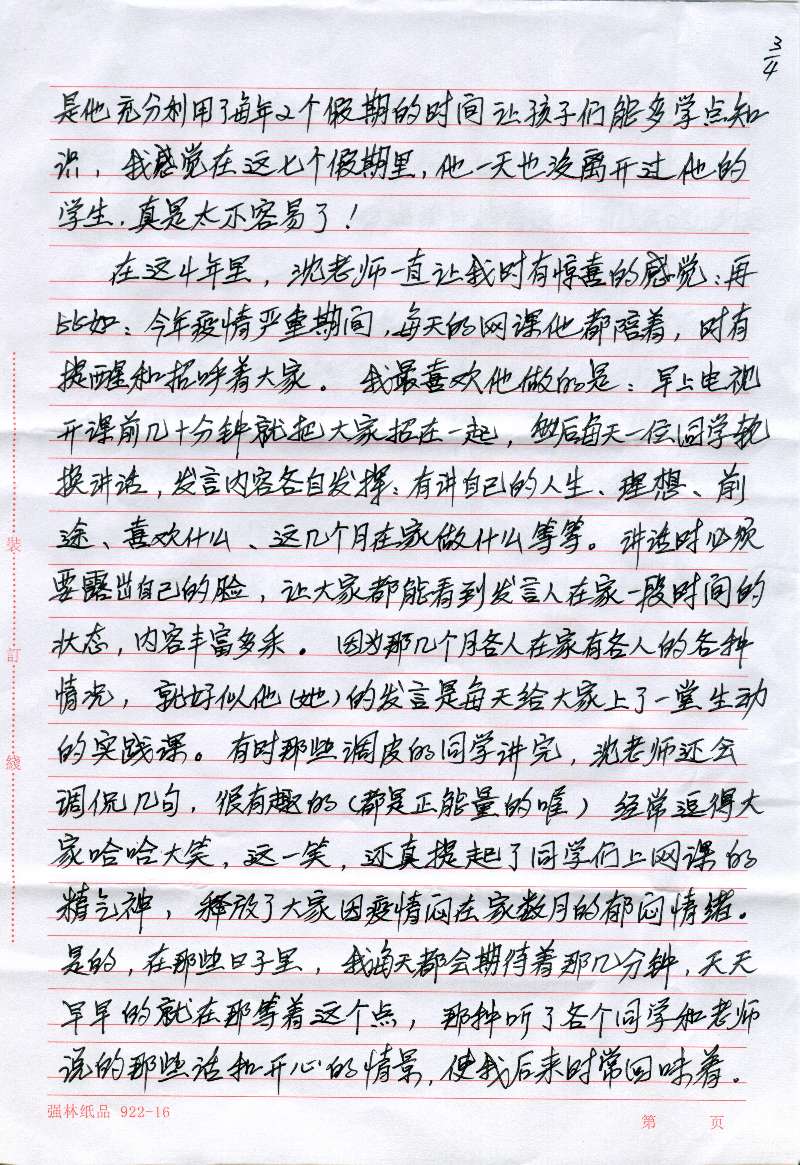 3/4
是他充分利用了每年2个假期的时间让孩子们能多学点知
识，我感觉在这七个假期里，他一天也没离开过他的
学生，真是太不容易了！
在这4年里，沈老师一直让我时有惊喜的感觉：再
比如：今年疫情严重期间，每天的网课他都陪着，时有
提醒和招呼着大家。我最喜欢他做的是：早上电视
开课前几十分钟就把大家招在一起，然后每天一位同学轮
换讲话，发言内容各自发挥：有讲自己的人生、理想、前
途、喜欢什么、这几个月在家做什么等等。讲话时必须
要露出自己的脸，让大家都能看到发言人在家一段时间的
状态，内容丰富多采。因为那几个月各人在家有各人的各种
情况，就好似他（她）的发言是每天给大家上了一堂生动
的实践课。有时那些调皮的同学讲完，沈老师还会
调侃几句，很有趣的（都是正能量的唯）经常逗得大
家哈哈大笑，这一笑，还真提起了同学们上网课的
精气神，释放了大家因疫情闷在家数月的郁闷情绪。
是的，在那些日子里，我每天都会期待着那几分钟，天天
早早的就在那等着这个点，那种听了各个同学和老师
说的那些话和开心的情景，使我后来时常回味着。
裝
訂
綫
强林纸品 922-16
第 页